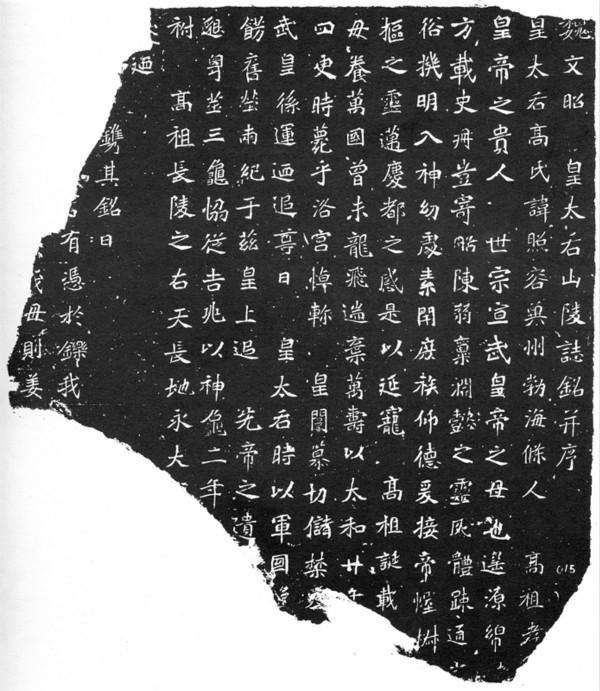 魏文昭 皇太后山陵誌銘并序
皇太后高氏諱照容冀州勃海條人 高祖孝
皇帝之貴人 世宗宣武皇帝之母也遥源綿
方載史冊豈寄略陳弱稟淵懿之靈夙體疎通
俗機明入神幼處素閈庭族仰德爰接帝幄椒
樞之靈邁慶都之感是以延寵 高祖誕載
母養萬國曾未龍飛遄棄萬壽以太和廿年
四更時薨乎洛宮悼軫 皇闈慕切儲禁
武皇係運迺追尊曰 皇太后時以軍國
餝舊塋兩紀于茲皇上追 先帝之遺
懇粵塋三龜恊從吉兆以神龜二年
祔 高祖長陵之右天長地永大
迺
鐫其銘曰
有憑於鑠我
母則姜